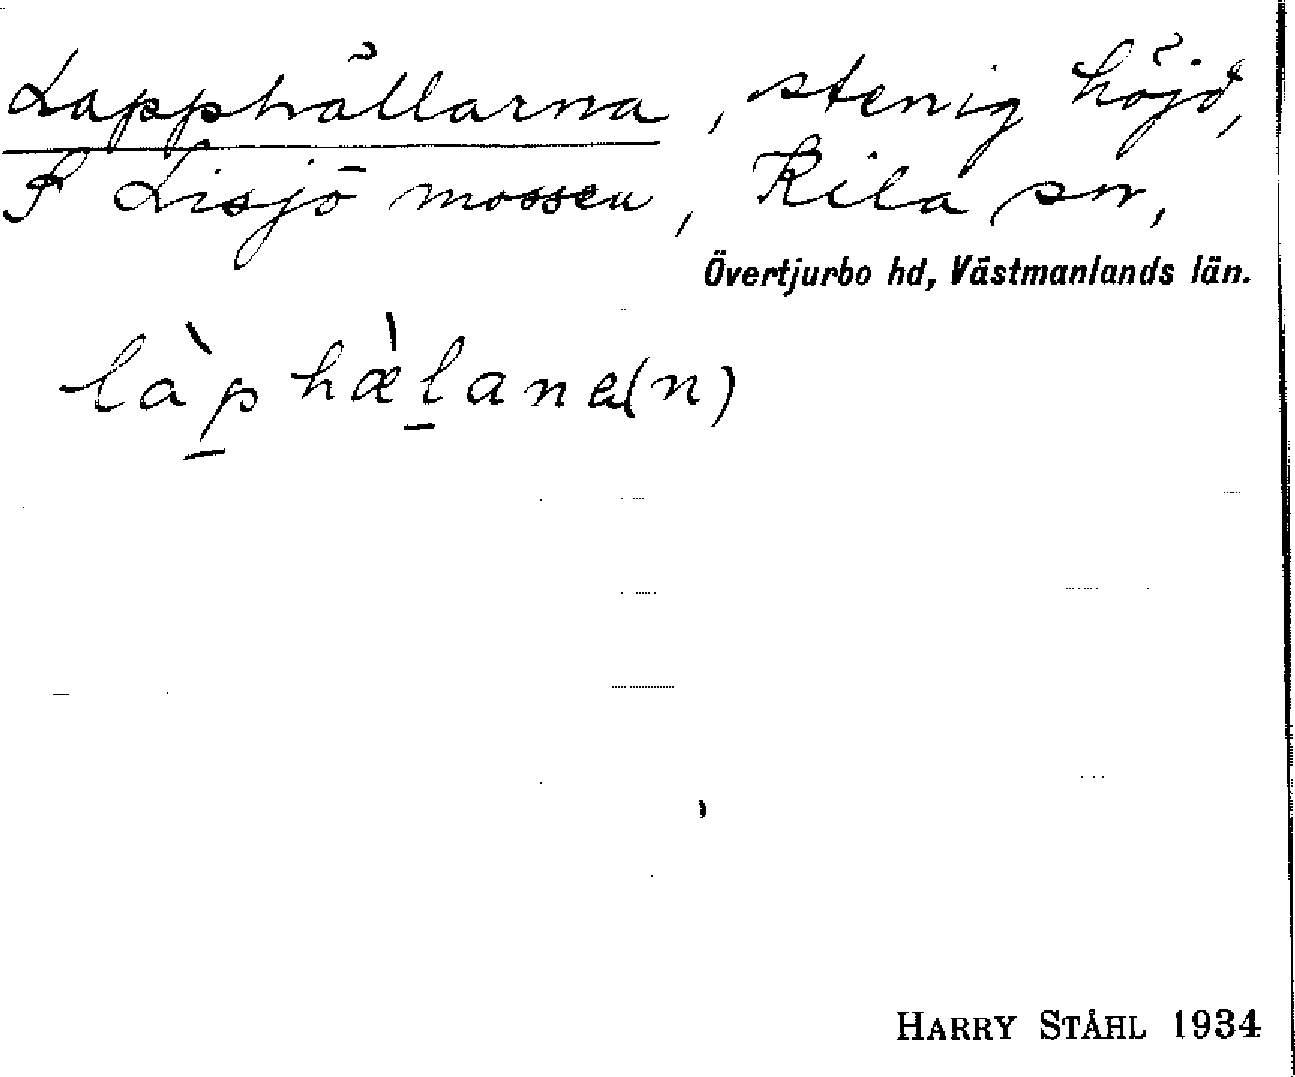 Lapphällarna, stenig höjd,
S Lisjö mossen, Kila sn,
Övertjurbo hd, Västmanlands län.
làp hæ̀lana(n)
HARRY STÅHL 1934